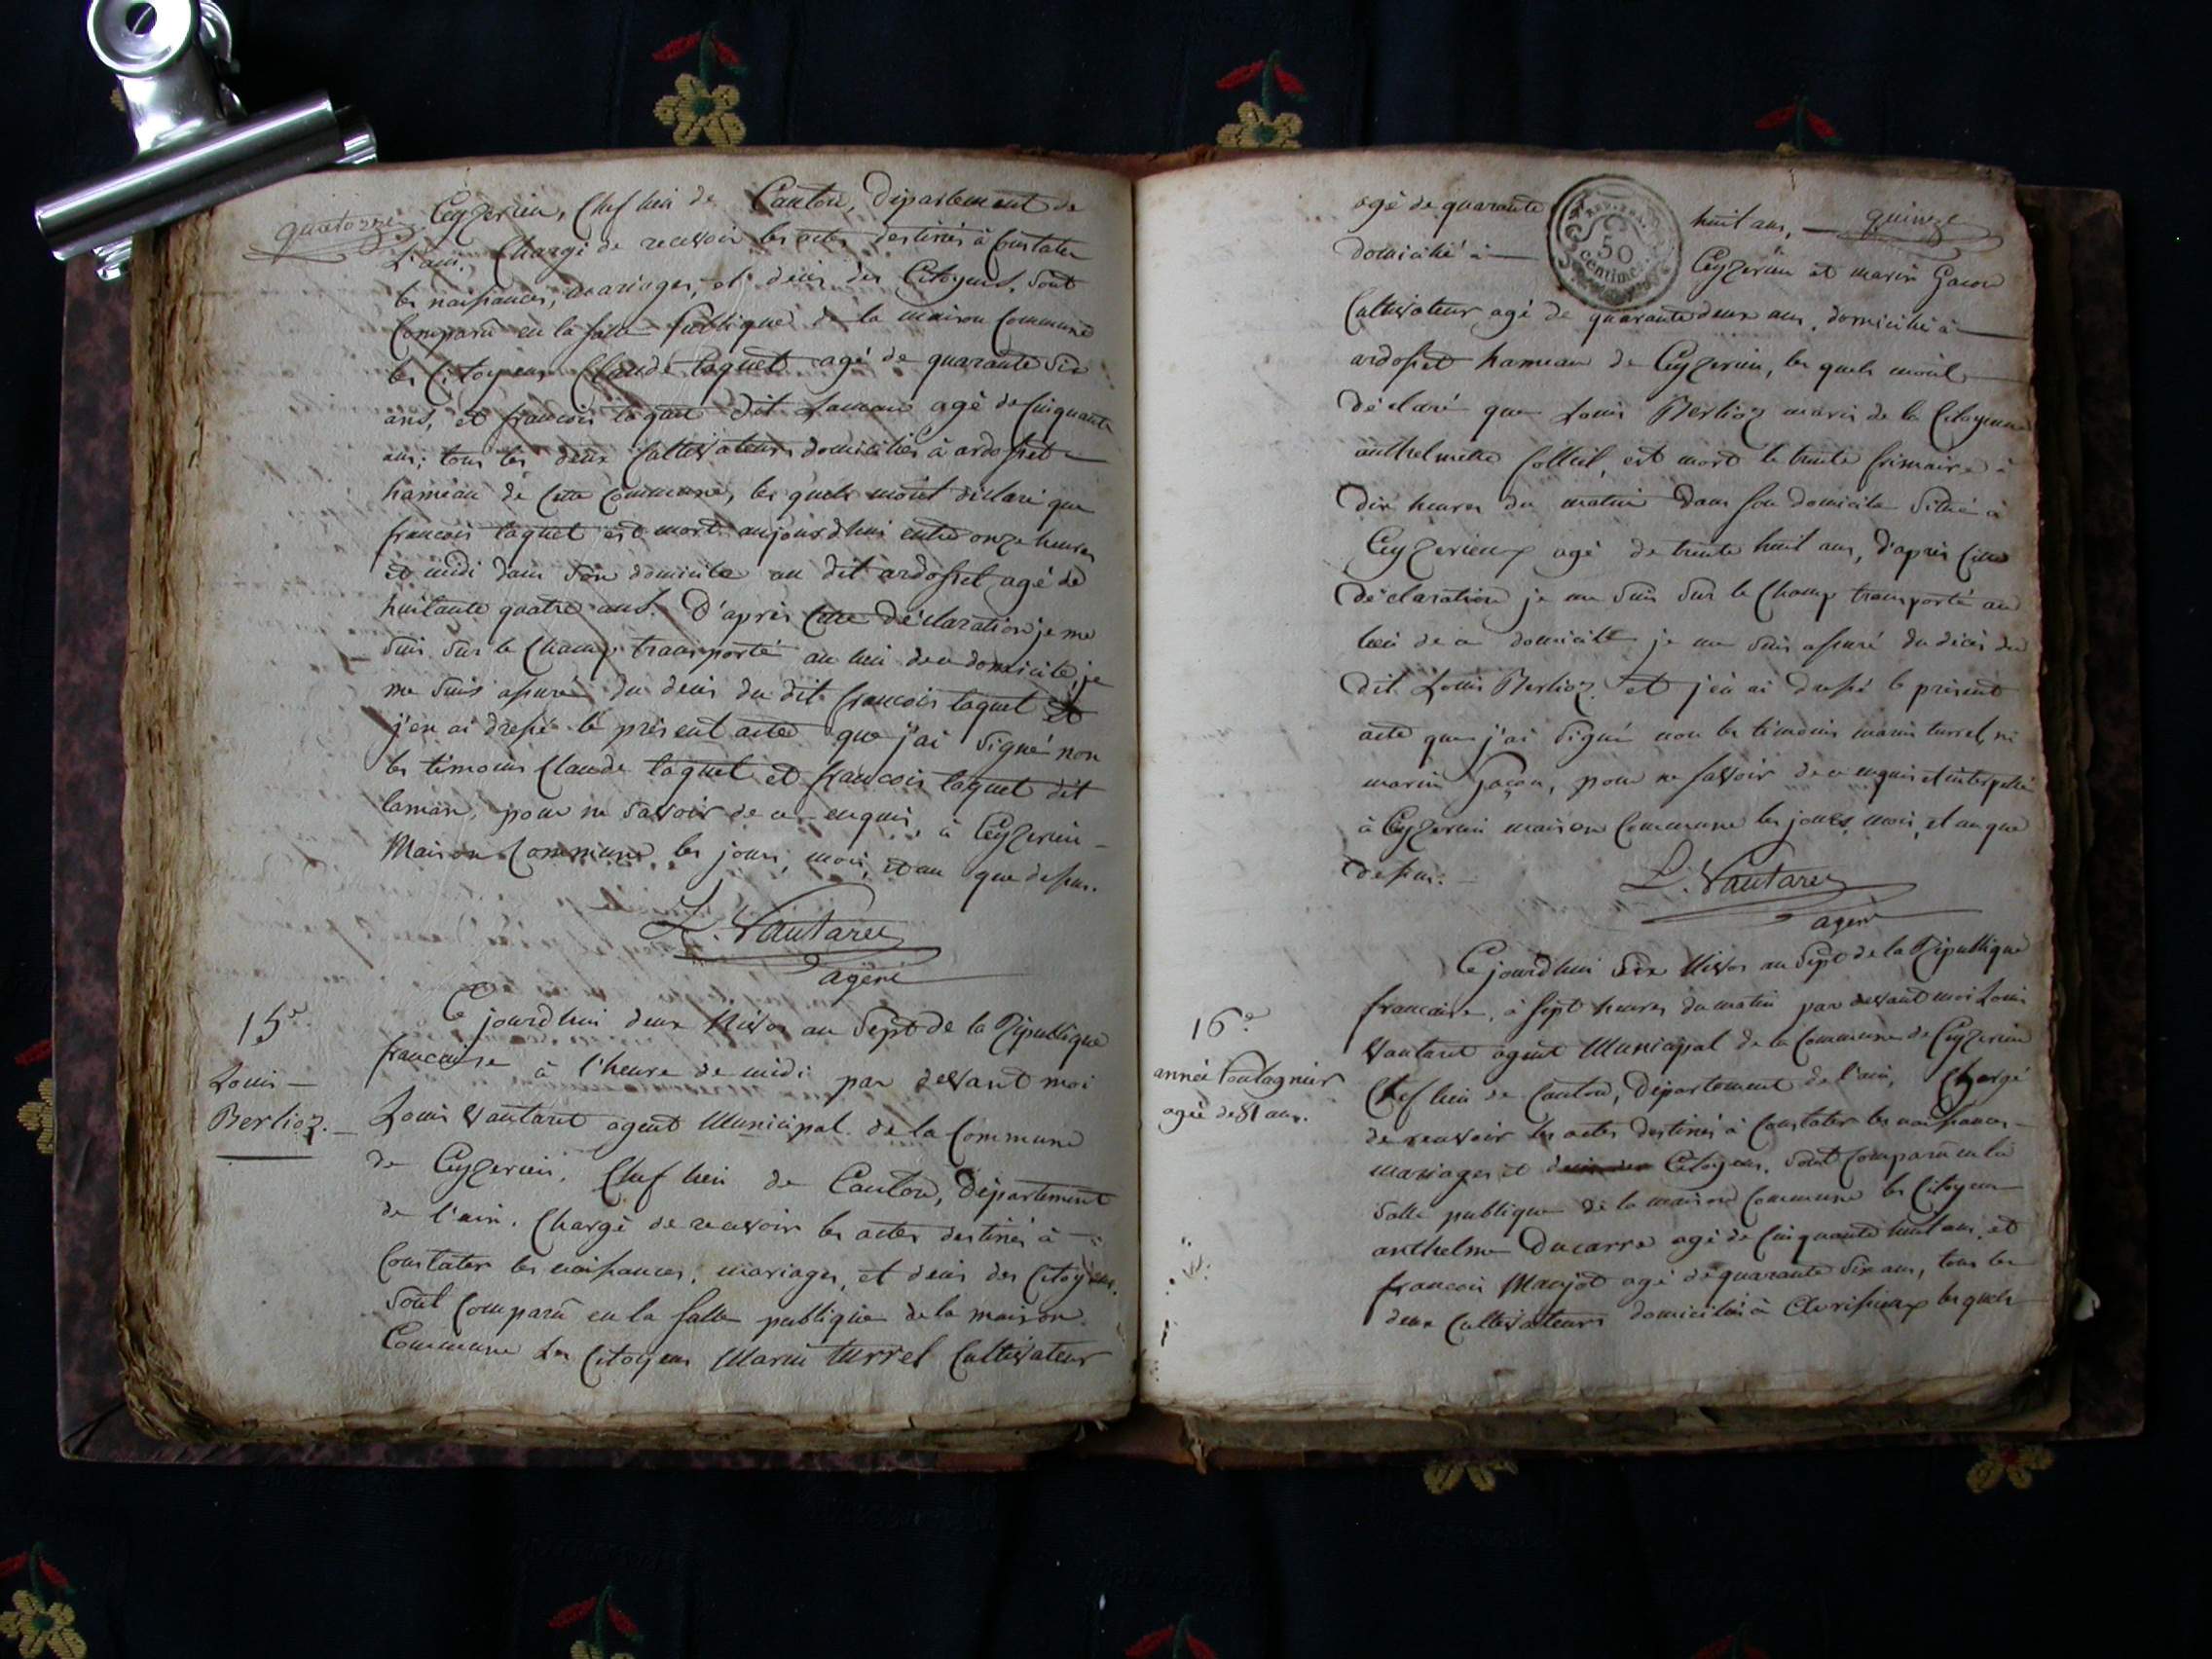 quatorze
Ceyzerieu, Chef lieu de Canton, département de
L'ain. Chargé de recevoir les actes destinés à Constater
les naissances, mariages, et décès des Citoyens. Sont
Comparû en la salle publique de la maison Commune
les Citoyens Claude taquet agé de quarante Six
ans, et francois taquet dit Laman agé de Cinquante
ans; tous les deux Cultivateurs domiciliés à ardosset
hameau de Cette Commune, les quels m'ont déclaré que
francois taquet est mort aujourd'hui entre onze heures
et midi dans Son domicile au dit ardosset agé de
huitante quatre ans. D'après Cette Déclaration je me
Suis Sur le Champ transporté au lieu de ce domicile, je
me Suis assuré du décès du dit francois taquet et
j'en ai dressé le présent acte que j'ai Signé non
les témoins Claude taquet et francois taquet dit
laman, pour ne Savoir de ce enquis, à Ceyzerieu
Maison Commune les jour, mois, et an que dessus.
L. Vautaret
agent
15e
Louis
Berlioz.
Ce jourd'hui deux Nivos an Sept de la République
francaise à l'heure de midi par devant moi
Louis Vautaret agent Municipal de la Commune
de Ceyzerieu, Chef lieu de Canton, département
de l'ain. Chargé de recevoir les actes destinés à
Constater les naissances, mariages, et décès des Citoyens.
Sont Comparû en la salle publique de la maison
Commune Les Citoyens Marin turrel Cultivateur
agé de quarante huit ans, quinze
50
centimes
domicilié à Ceyzerieu et marin Gacon
Cultivateur agé de quarante deux ans, domicilié à
ardosset hameau de Ceyzerieu, les quels m'ont
déclaré que Louis Berlioz maris de la Citoyenne
anthelmette est mort le trente frimaire à
dix heures du matin dans son domicile Situé à
Ceyzerieux agé de trente huit ans, d'après Cette
déclaration je me Suis Sur le Champ transporté au
lieu de ce domicile je me Suis assuré du décès du
dit Louis Berlioz et j'en ai dressé le présent
acte que j'ai Signé non les témoins marin turrel, ni
marin Gaçon, pour ne savoir de ce enquis et interpellé
à Ceyzerieu maison Commune les jours, mois, et an que
dessus.
L. Vautaret
agent
16e
agée de 81 ans.
Ce jourd'hui Six Nivos an Sept de la République
francaise, à sept heures du matin par devant moi Louis
Vautaret agent Municipal de la Commune de Ceyzerieu
Chef lieu de Canton, Département de l'ain, Chargé
de recevoir les actes destinés à Constater les naissances
mariages et décès des Citoyens. Sont Comparû en la
Salle publique de la maison Commune les Citoyens
anthelme Ducarre agé de Cinquante huit ans, et
francois agé de quarante Six ans, tous les
deux Cultivateurs domiciliés à les quels